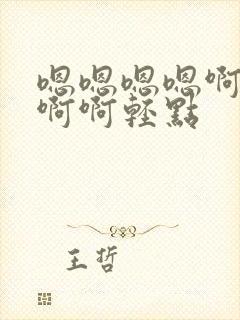 嗯嗯嗯嗯啊
啊啊輕點
王哲